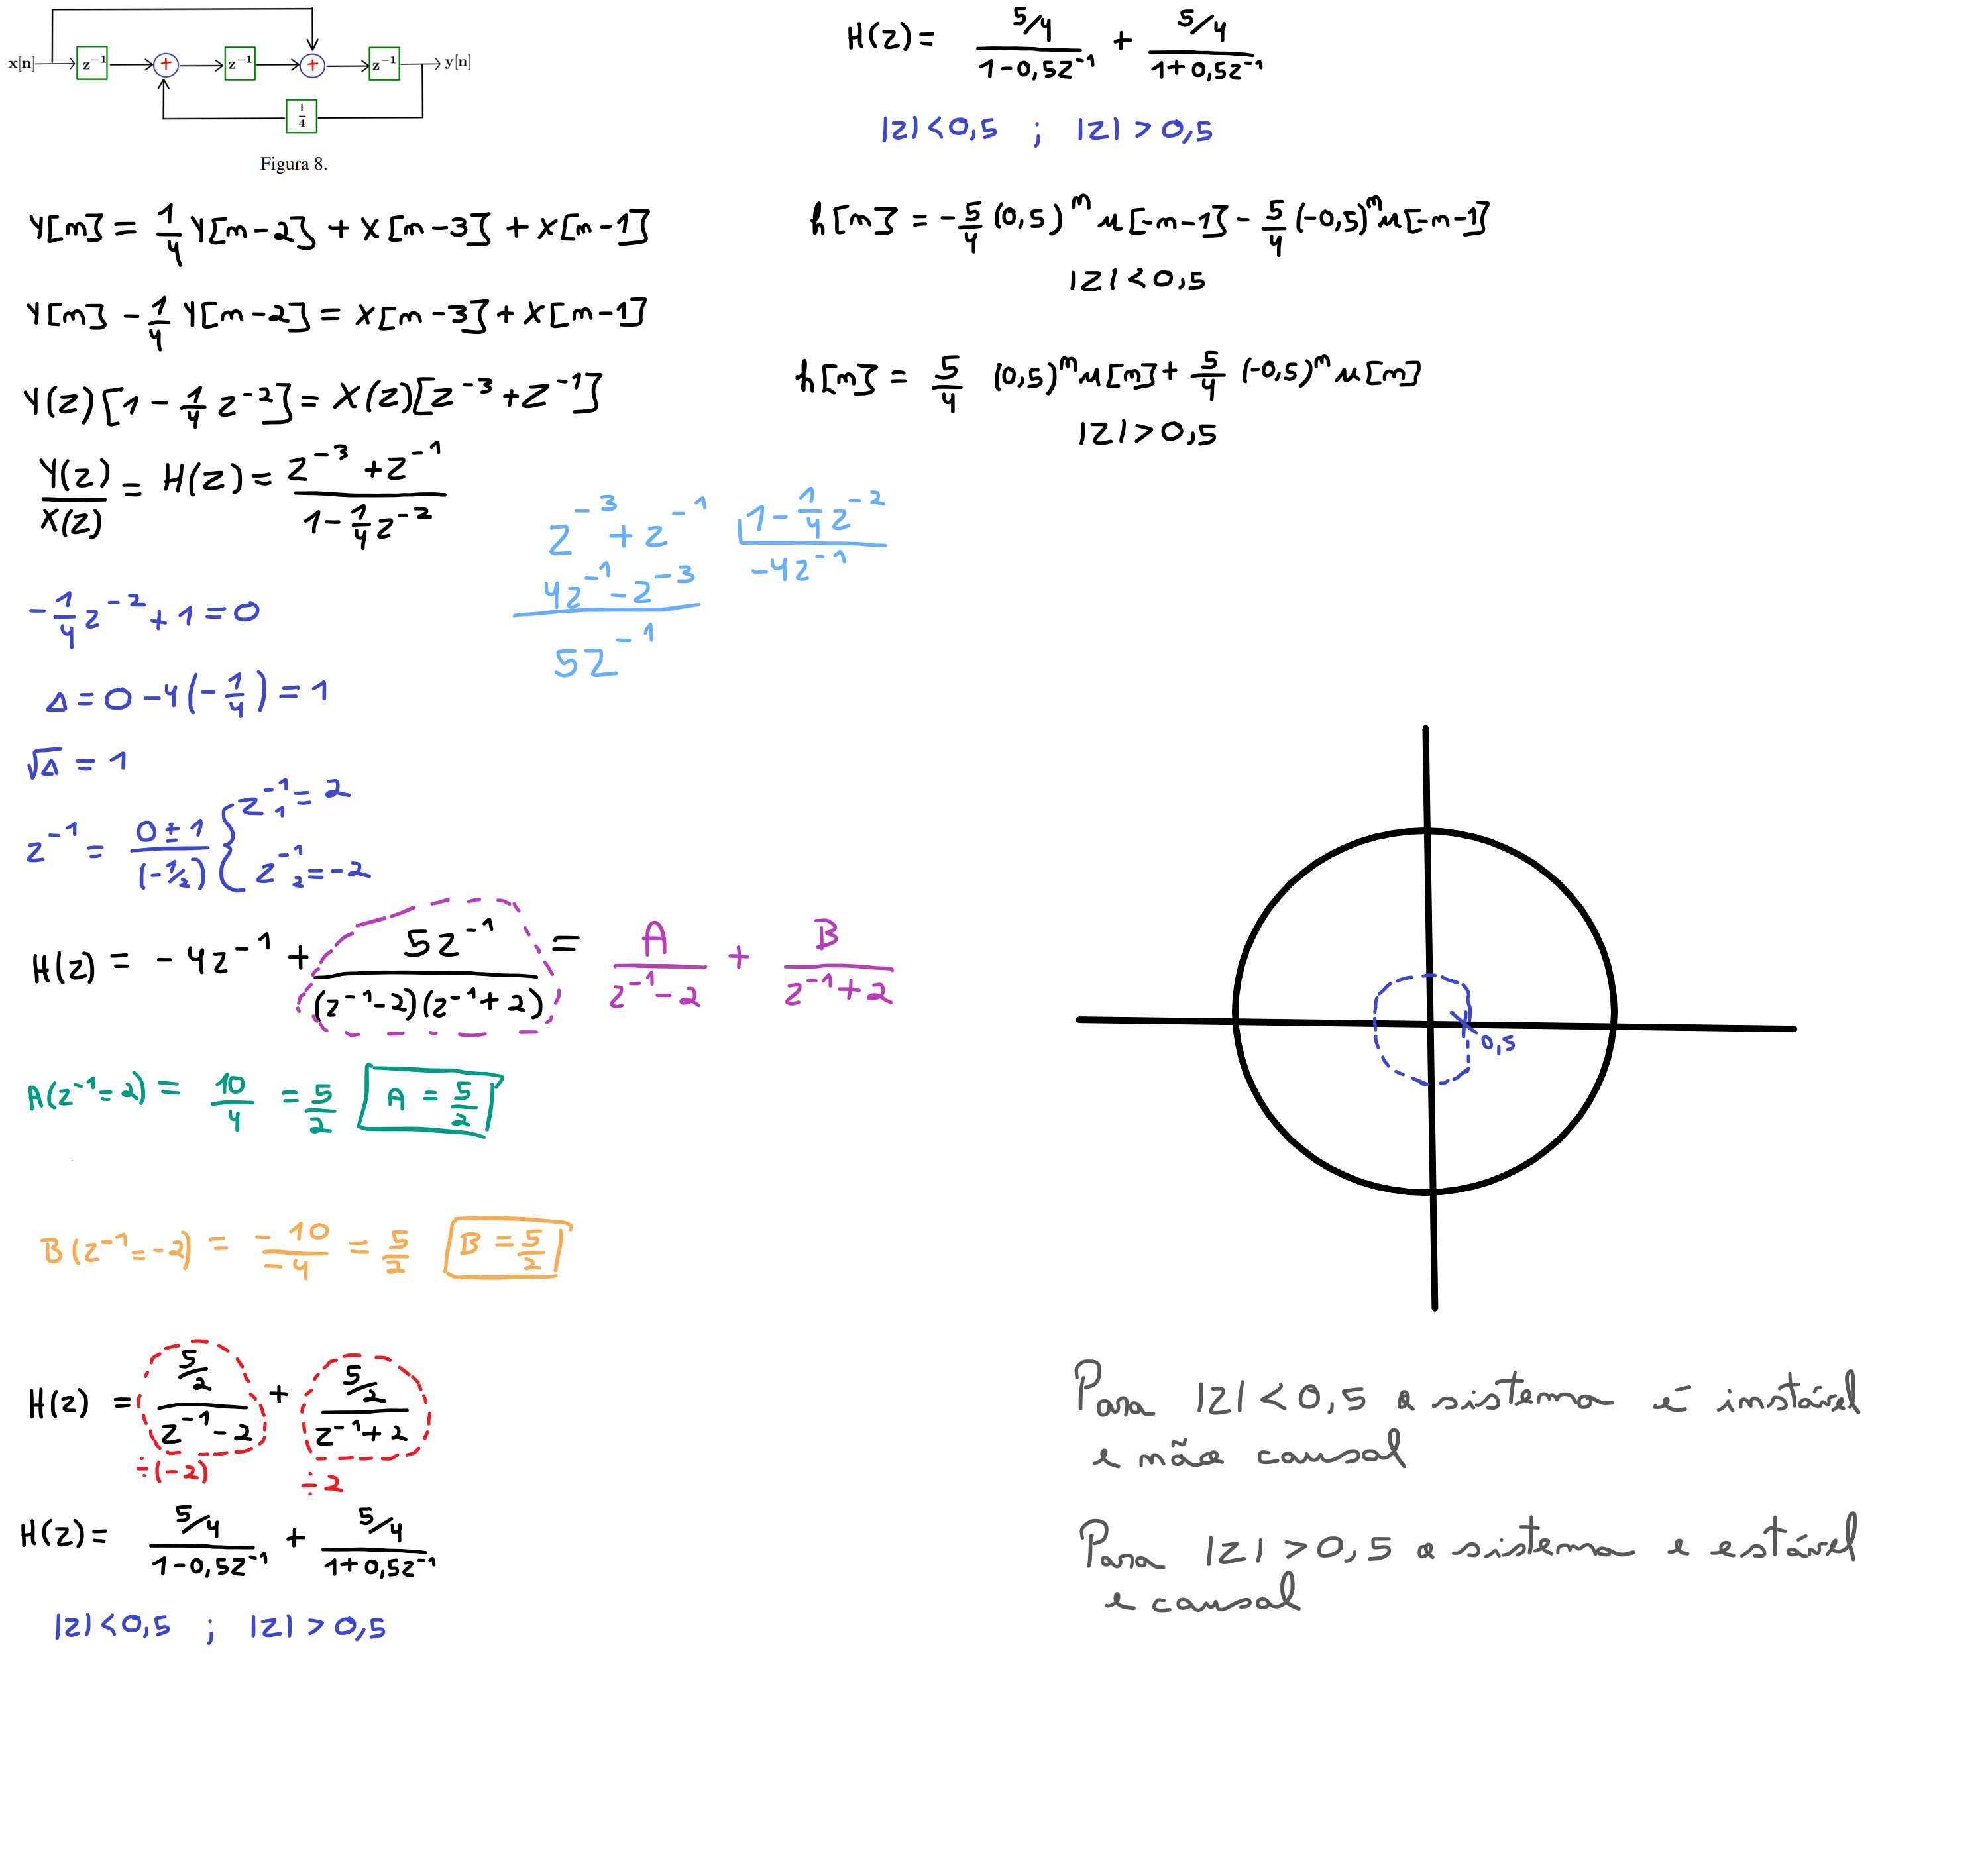 x[n] z⁻¹ + z⁻¹ + z⁻¹ y[n]
1/4
Figura 8.
Y[n] = 1/4 Y[n-2] + X[n-3] + X[n-1]
Y[n] - 1/4 Y[n-2] = X[n-3] + X[n-1]
Y(z)[1 - 1/4 z⁻²] = X(z)[z⁻³ + z⁻¹]
Y(z)/X(z) = H(z) = (z⁻³ + z⁻¹)/(1 - 1/4 z⁻²)
z⁻³ + z⁻¹ | 1 - 1/4 z⁻²
4z⁻¹ - z⁻³ -4z⁻¹
5z⁻¹
-1/4 z⁻² + 1 = 0
Δ = 0 - 4(-1/4) = 1
√Δ = 1
z⁻¹ = (0 ± 1)/(-1/2) { z₁⁻¹ = 2
z₂⁻¹ = -2
H(z) = -4z⁻¹ + 5z⁻¹/((z⁻¹-2)(z⁻¹+2)) = A/(z⁻¹-2) + B/(z⁻¹+2)
A(z⁻¹=2) = 10/4 = 5/2 A = 5/2
B(z⁻¹=-2) = -10/-4 = 5/2 B = 5/2
H(z) = (5/2)/(z⁻¹-2) + (5/2)/(z⁻¹+2)
÷(-2) ÷2
H(z) = (5/4)/(1-0,5z⁻¹) + (5/4)/(1+0,5z⁻¹)
|z|<0,5 ; |z|>0,5
H(z) = (5/4)/(1-0,5z⁻¹) + (5/4)/(1+0,5z⁻¹)
|z|<0,5 ; |z|>0,5
h[n] = -5/4 (0,5)ⁿ u[-n-1] - 5/4 (-0,5)ⁿ u[-n-1]
|z|<0,5
h[n] = 5/4 (0,5)ⁿ u[n] + 5/4 (-0,5)ⁿ u[n]
|z|>0,5
0,5
Para |z|<0,5 o sistema é instável
e não causal
Para |z|>0,5 o sistema e estável
e causal